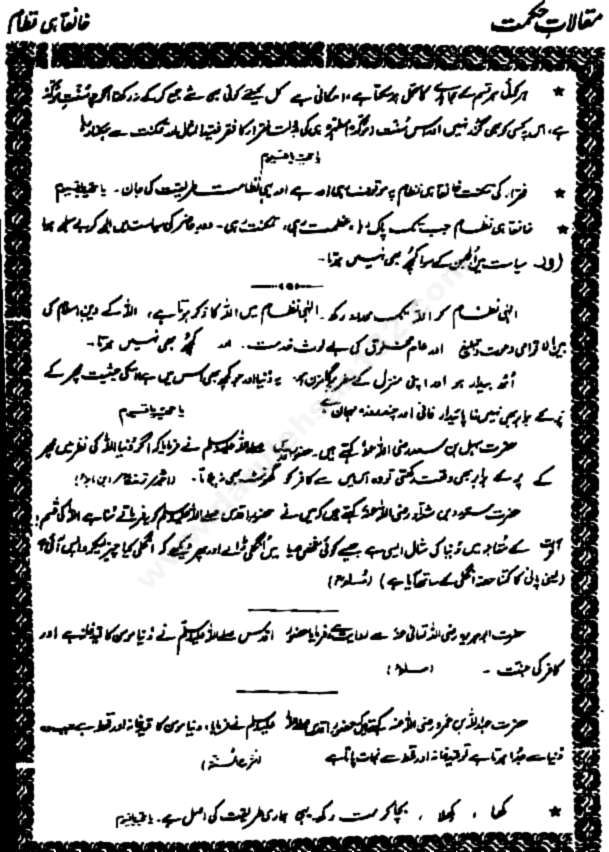 مقالات حکمت
خانقاہی نظام
★ ہر کوئی ہر قسم کے کا متحمل ہو سکتا ہے، کل کیلئے کوئی بھی شے جمع کر کے نہ رکھنا اگرچہ سنت
ہے، اس پر کسی کو بھی نہیں اور اس سنت ہی کی بدولت فقراء کا فقر
یا حی یا قیوم
★ فقراء کی تمکنت خانقاہی نظام پہ موقوف رہی اور ہے اور یہی نظام طریقت کی جان ۔ یا حی یا قیوم
★ خانقاہی نظام جب تک پاک رہا، عظمت رہی، تمکنت رہی ۔ دورِ حاضر کی سیاست میں الجھ کر بے سلجھ ہوا
اور سیاست میں الجھن کے سوا کچھ بھی نہیں ہوتا ۔
الٰہی نظام کو اللہ تک محدود رکھ ۔ الٰہی نظام میں اللہ کا ذکر ہوتا ہے، اللہ کے دینِ اسلام کی
بین الاقوامی دعوت و تبلیغ اور عام مخلوق کی بے لوث خدمت ۔ اور کچھ بھی نہیں ہوتا ۔
اُٹھ بیدار ہو اور اپنی منزل کے سفر پہ گامزن ہو ۔ یہ دنیا اور جو کچھ بھی اس میں ہے، اسکی حیثیت مچھر کے
پَر کے برابر بھی نہیں ناپائیدار فانی اور چند روزہ مہمان ہے یا حی یا قیوم
حضرت سہل بن سعد رضی اللہ عنہ کہتے ہیں ۔ حضور اقدس صلے اللہ علیہ وسلم نے فرمایا کہ اگر دنیا اللہ کی نظر میں مچھر
کے پر کے برابر بھی وقعت رکھتی تو وہ اس میں سے کافر کو گھونٹ بھی نہ پلاتا ۔ (احمد، ترمذی، ابن ماجہ)
حضرت مستورد بن شداد رضی اللہ عنہ کہتے ہیں کہ میں نے حضور اقدس صلے اللہ علیہ وسلم کو یہ فرماتے سنا ہے اللہ کی قسم،
آخرت کے مقابلہ میں دنیا کی مثال ایسی ہے جیسے کوئی شخص دریا میں انگلی ڈالے اور پھر دیکھے کہ انگلی کیا چیز لیکر واپس آئی؟
(یعنی پانی کا کتنا حصہ انگلی کے ساتھ آیا ہے) (مسلم)
حضرت ابو ہریرہ رضی اللہ تعالیٰ عنہ سے روایت ہے، فرمایا حضور اقدس صلے اللہ علیہ وسلم نے دنیا مومن کا قید خانہ ہے اور
کافر کی جنت ۔ (مسلم)
حضرت عبداللہ بن عمرو رضی اللہ عنہ کہتے ہیں کہ حضور اقدس صلے اللہ علیہ وسلم نے فرمایا، دنیا مومن کا قید خانہ اور قحط ہے جب وہ
دنیا سے جدا ہوتا ہے تو قید خانہ اور قحط سے نجات پاتا ہے (شرح السنۃ)
★ کھا، کھلا، بچا کر مت رکھ ۔ یہی ہماری طریقت کی اصل ہے ۔ یا حی یا قیوم